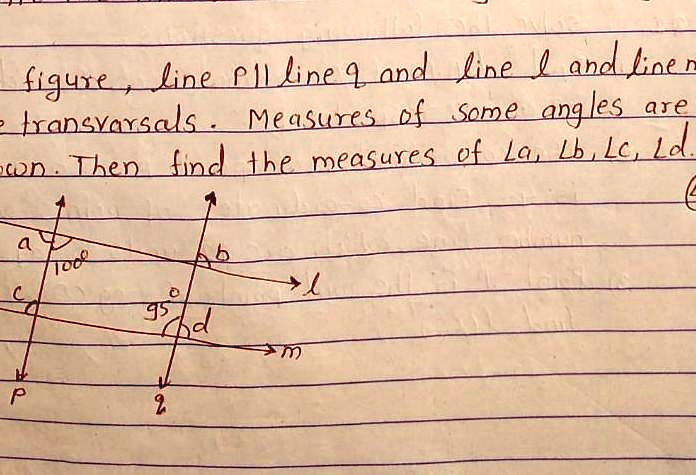 figure, line p || line q and line l and line m
transvarsals. Measures of some angles are
Then find the measures of ∠a, ∠b, ∠c, ∠d.
a
100°
b
l
c
95°
d
m
p
q